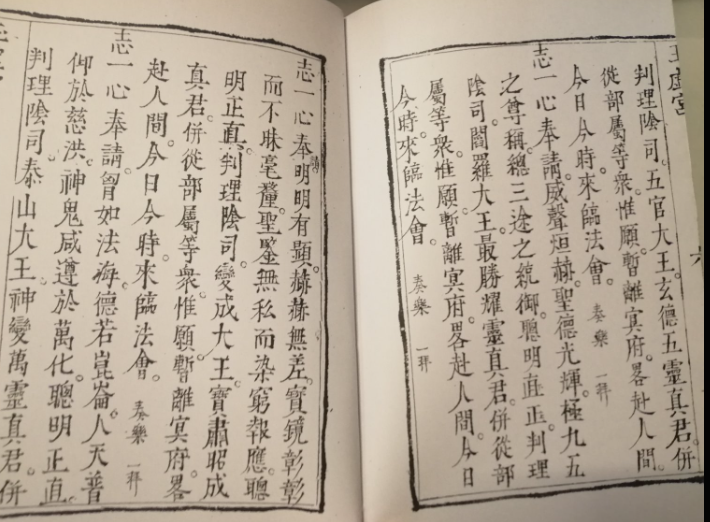 玉虛宮
六
判理陰司。五官大王。玄德五靈真君。併
從部屬等衆。惟願暫離㝠府。畧赴人間。
今日今時。來臨法會。 奏樂 一拜
志一心奉請。威聲烜赫。聖德光輝。極九五
之尊稱。總三途之統御。聰明正直。判理
陰司。閻羅大王。最勝耀靈真君。併從部
屬等衆。惟願暫離㝠府。畧赴人間。今日
今時。來臨法會。 奏樂 一拜
志一心奉請明明有顯。赫赫無差。寶鏡彰彰
而不昧毫釐。聖鑒無私而染窮報應。聰
明正直。判理陰司。變成大王。寶肅昭成
真君。併從部屬等衆。惟願暫離㝠府。畧
赴人間。今日今時。來臨法會。 奏樂 一拜
志一心奉請。曾如法海。德若崑崙。人天普
仰於慈洪。神鬼咸遵於萬化。聰明正直。
判理陰司。泰山大王。神變萬靈真君。併